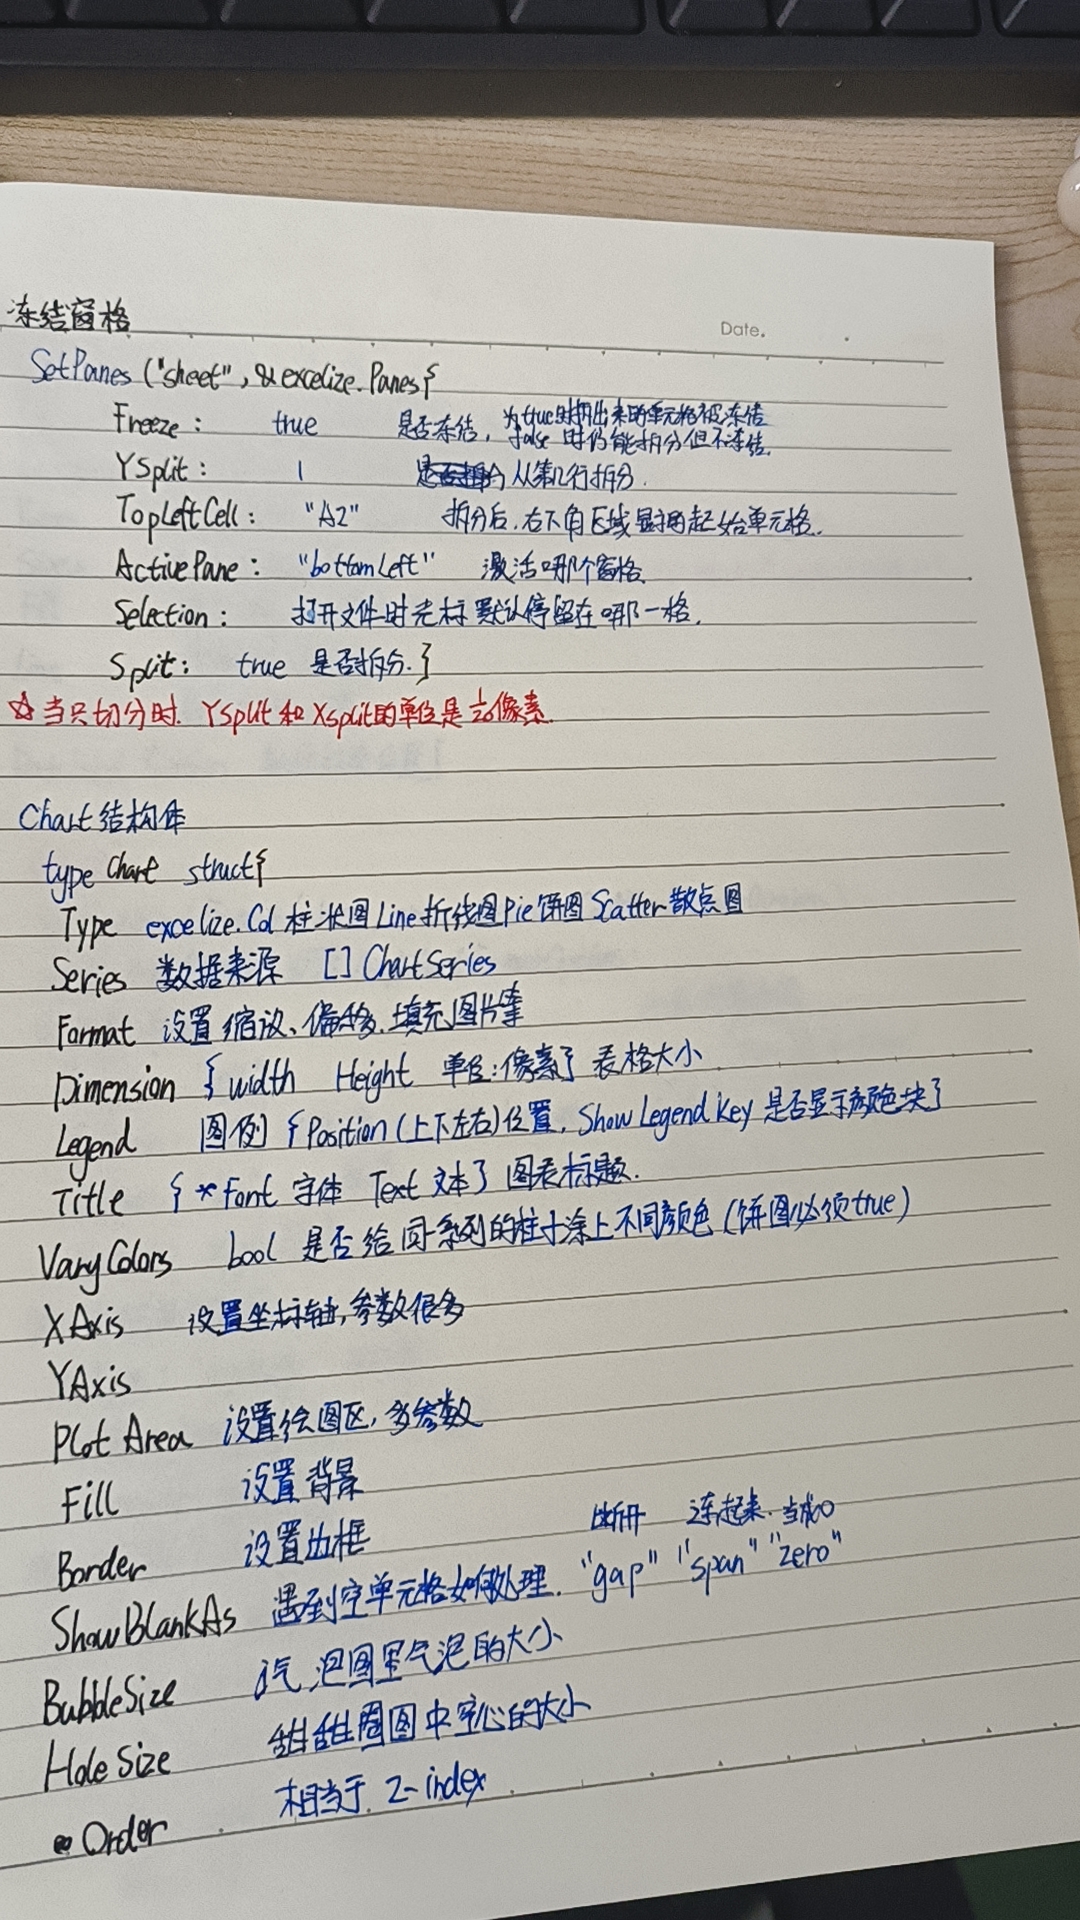 冻结窗格
Date.
SetPanes ("sheet", &excelize.Panes{
Freeze: true 是否冻结, 为true时拆出来的单元格被冻结
false 时仍能拆分但不冻结.
YSplit: 1 从第几行拆分.
TopLeftCell: "A2" 拆分后,右下角区域显示的起始单元格.
ActivePane: "bottomLeft" 激活哪个窗格
Selection: 打开文件时光标默认停留在哪一格.
Split: true 是否拆分.}
☆当只切分时. YSplit 和 Xsplit的单位是 1/20像素.
Chart 结构体
type Chart struct{
Type excelize.Col 柱状图 Line 折线图 Pie 饼图 Scatter 散点图
Series 数据来源 [] ChartSeries
Format 设置缩放、偏移.填充图片等
Dimension { width Height 单位:像素} 表格大小
Legend 图例 { Position (上下左右)位置, Show Legend Key 是否显示颜色块}
Title { *Font 字体 Text 文本} 图表标题.
VaryColors bool 是否给同系列的柱子涂上不同颜色 (饼图必须true)
XAxis 设置坐标轴,参数很多
YAxis
Plot Area 设置绘图区,多参数
Fill 设置背景
Border 设置边框
断开 连起来. 当成0
ShowBlankAs 遇到空单元格如何处理. "gap" "span" "zero"
BubbleSize 气泡图里气泡的大小
HoleSize 甜甜圈图中空心的大小
Order 相当于 Z-index